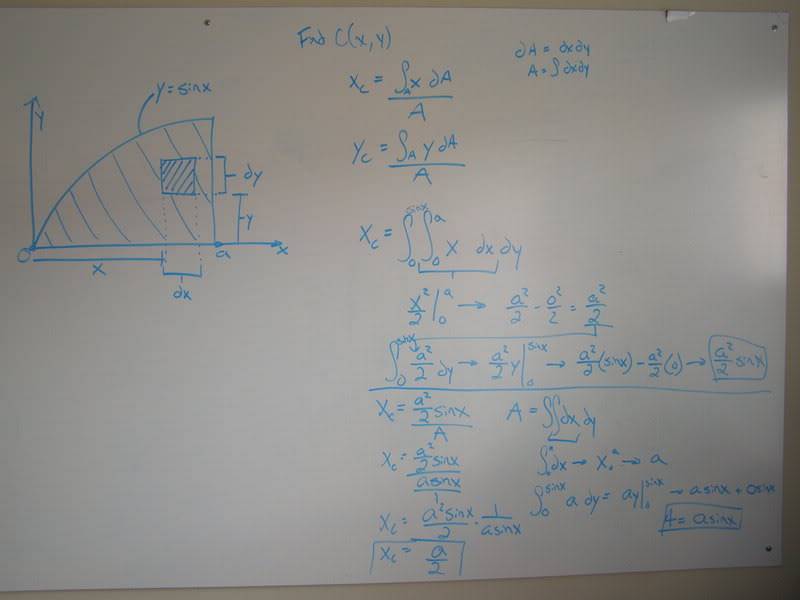 Find C(x, y)
∂A = ∂x∂y
A = ∫∂x∂y
y = sinx
y
∂y
y
0
a
x
x
∂x
Xc = ∫A x ∂A / A
Yc = ∫A y ∂A / A
Xc = ∫₀^sinx ∫₀^a x ∂x ∂y
x²/2 |₀^a → a²/2 - 0²/2 = a²/2
∫₀^sinx a²/2 ∂y → a²/2 y |₀^sinx → a²/2 (sinx) - a²/2 (0) → a²/2 sinx
Xc = a²/2 sinx / A
A = ∫∫∂x ∂y
Xc = a²/2 sinx / asinx / 1
∫₀^a ∂x → X₀^a → a
∫₀^sinx a ∂y = ay |₀^sinx → asinx + 0sinx
Xc = a² sinx / 2 · 1 / asinx
A = asinx
Xc = a/2